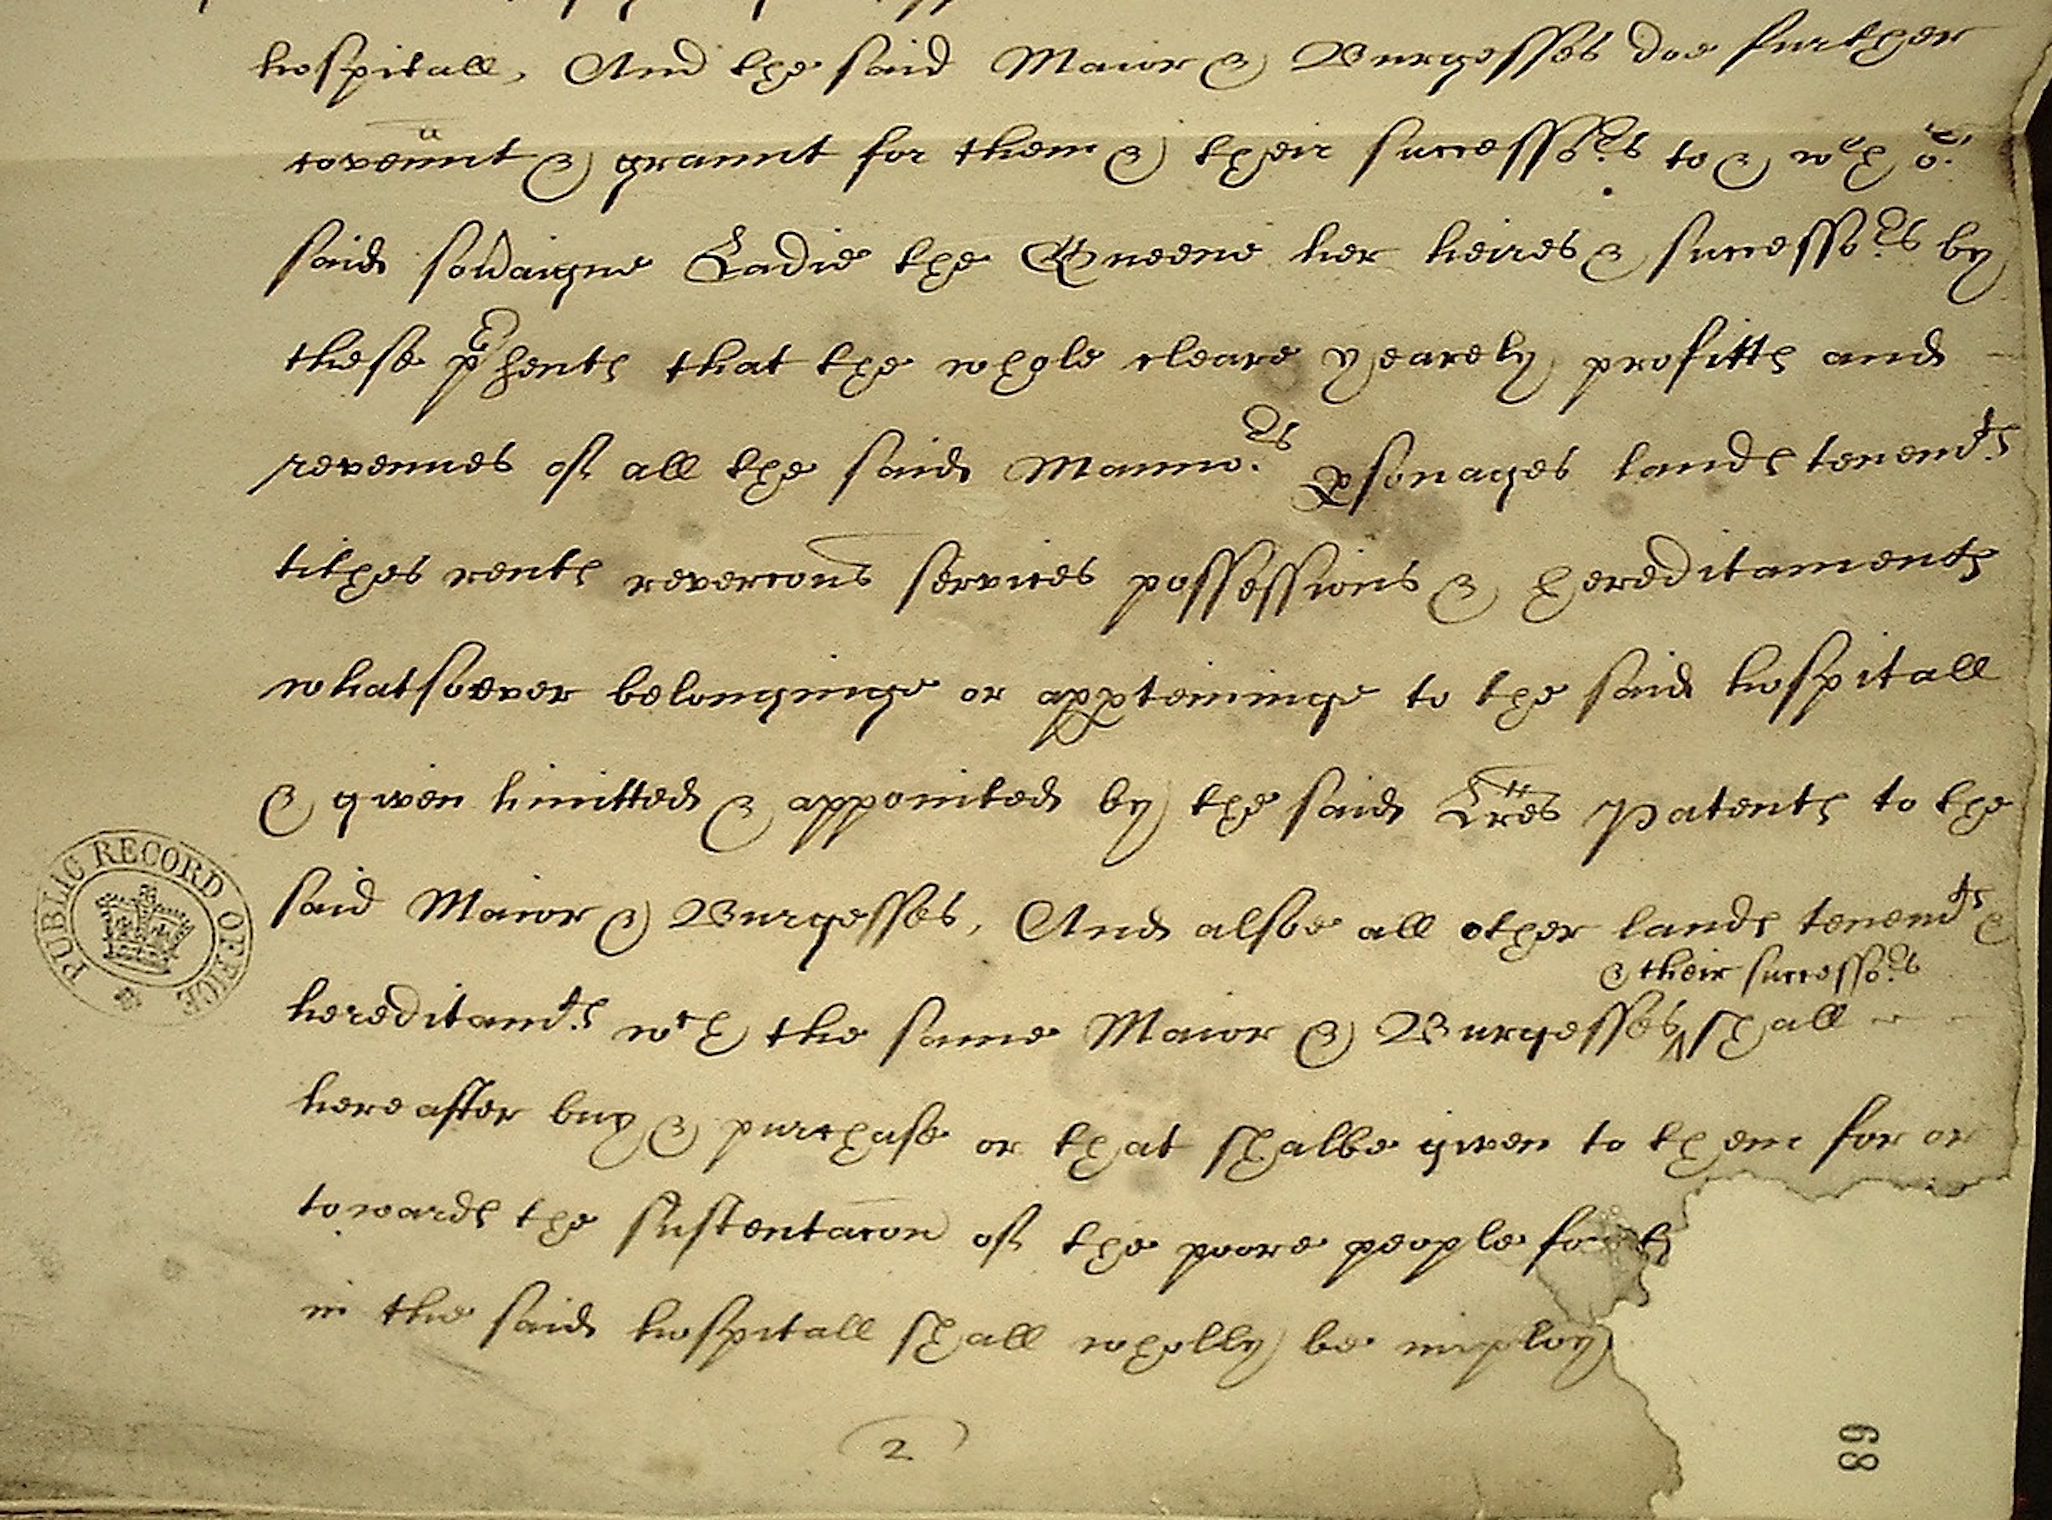 hospitall, And the said Maior & Burgesses doe further
coveñnt & graunt for them & their successors to & wth or
said sovaigne Ladie the Queene her heires & successors by
these psents that the whole cleare yearely profitts and
revenues of all the said Mannors psonages lands tenemts
tithes rents revercons services possessions & hereditaments
whatsoever belonginge or appteininge to the said hospitall
& given limitted & appointed by the said Lres Patents to the
said Maior & Burgesses, And alsoe all other lands tenemts &
& their successors
hereditamts wch the same Maior & Burgesses ^ shall
hereafter buy & purchase or that shalbe given to them for or
towards the sustentacon of the poore people
in the said hospitall shall wholly be imploy
2
PUBLIC RECORD OFFICE
89